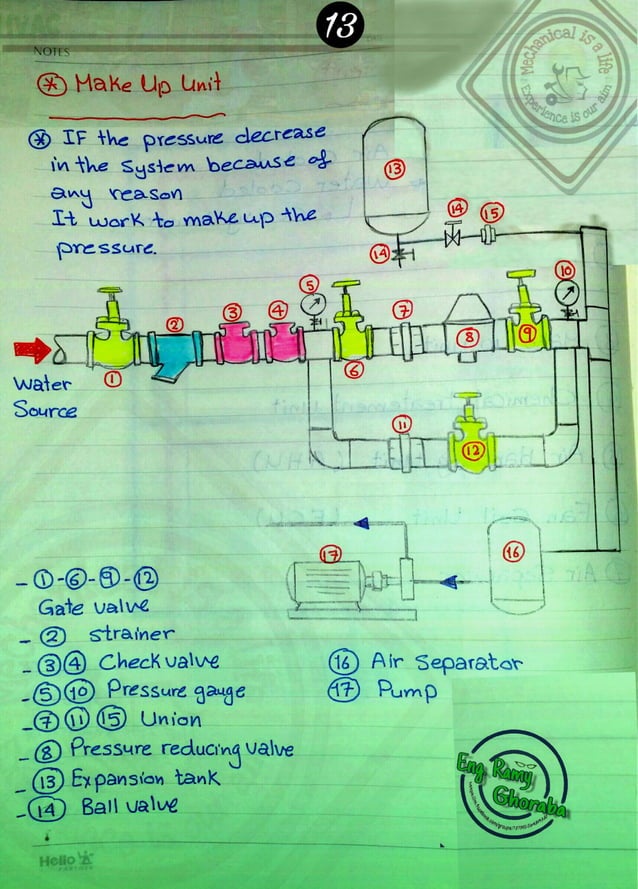 13
NOTES
Mechanical is a life
Experience is our aim
Make Up Unit
IF the pressure decrease
in the system because of
any reason
It work to make up the
pressure.
13
14
15
14
10
5
7
3
4
2
8
9
1
6
11
12
Water
Source
17
16
- 1 - 6 - 9 - 12
Gate valve
- 2 strainer
- 3 4 Check valve
- 5 10 Pressure gauge
- 7 11 15 Union
- 8 Pressure reducing valve
- 13 Expansion tank
- 14 Ball valve
16 Air Separator
17 Pump
Eng. Ramy
Ghoraba
Hello
PARTNER